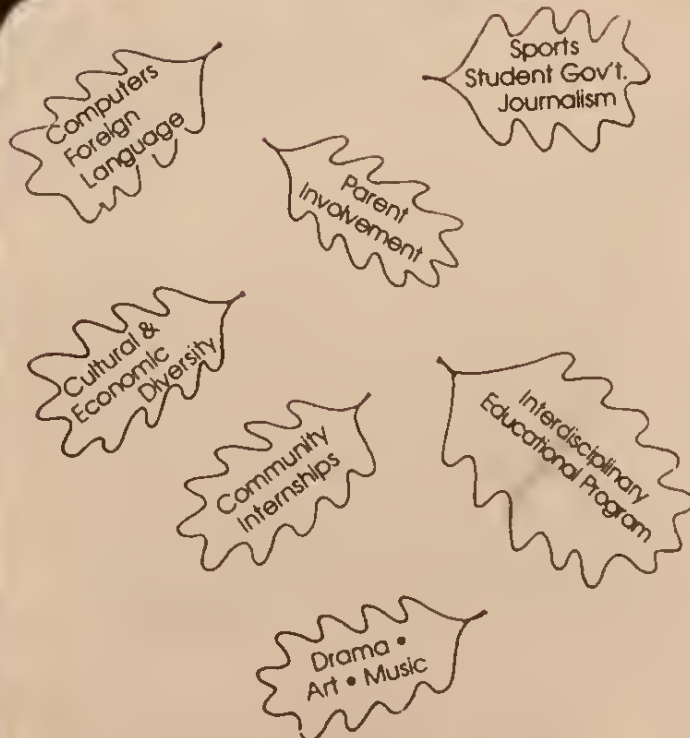 Computers
Foreign
Language
Sports
Student Gov't.
Journalism
Parent
Involvement
Cultural &
Economic
Diversity
Community
Internships
Interdisciplinary
Educational Program
Drama •
Art • Music